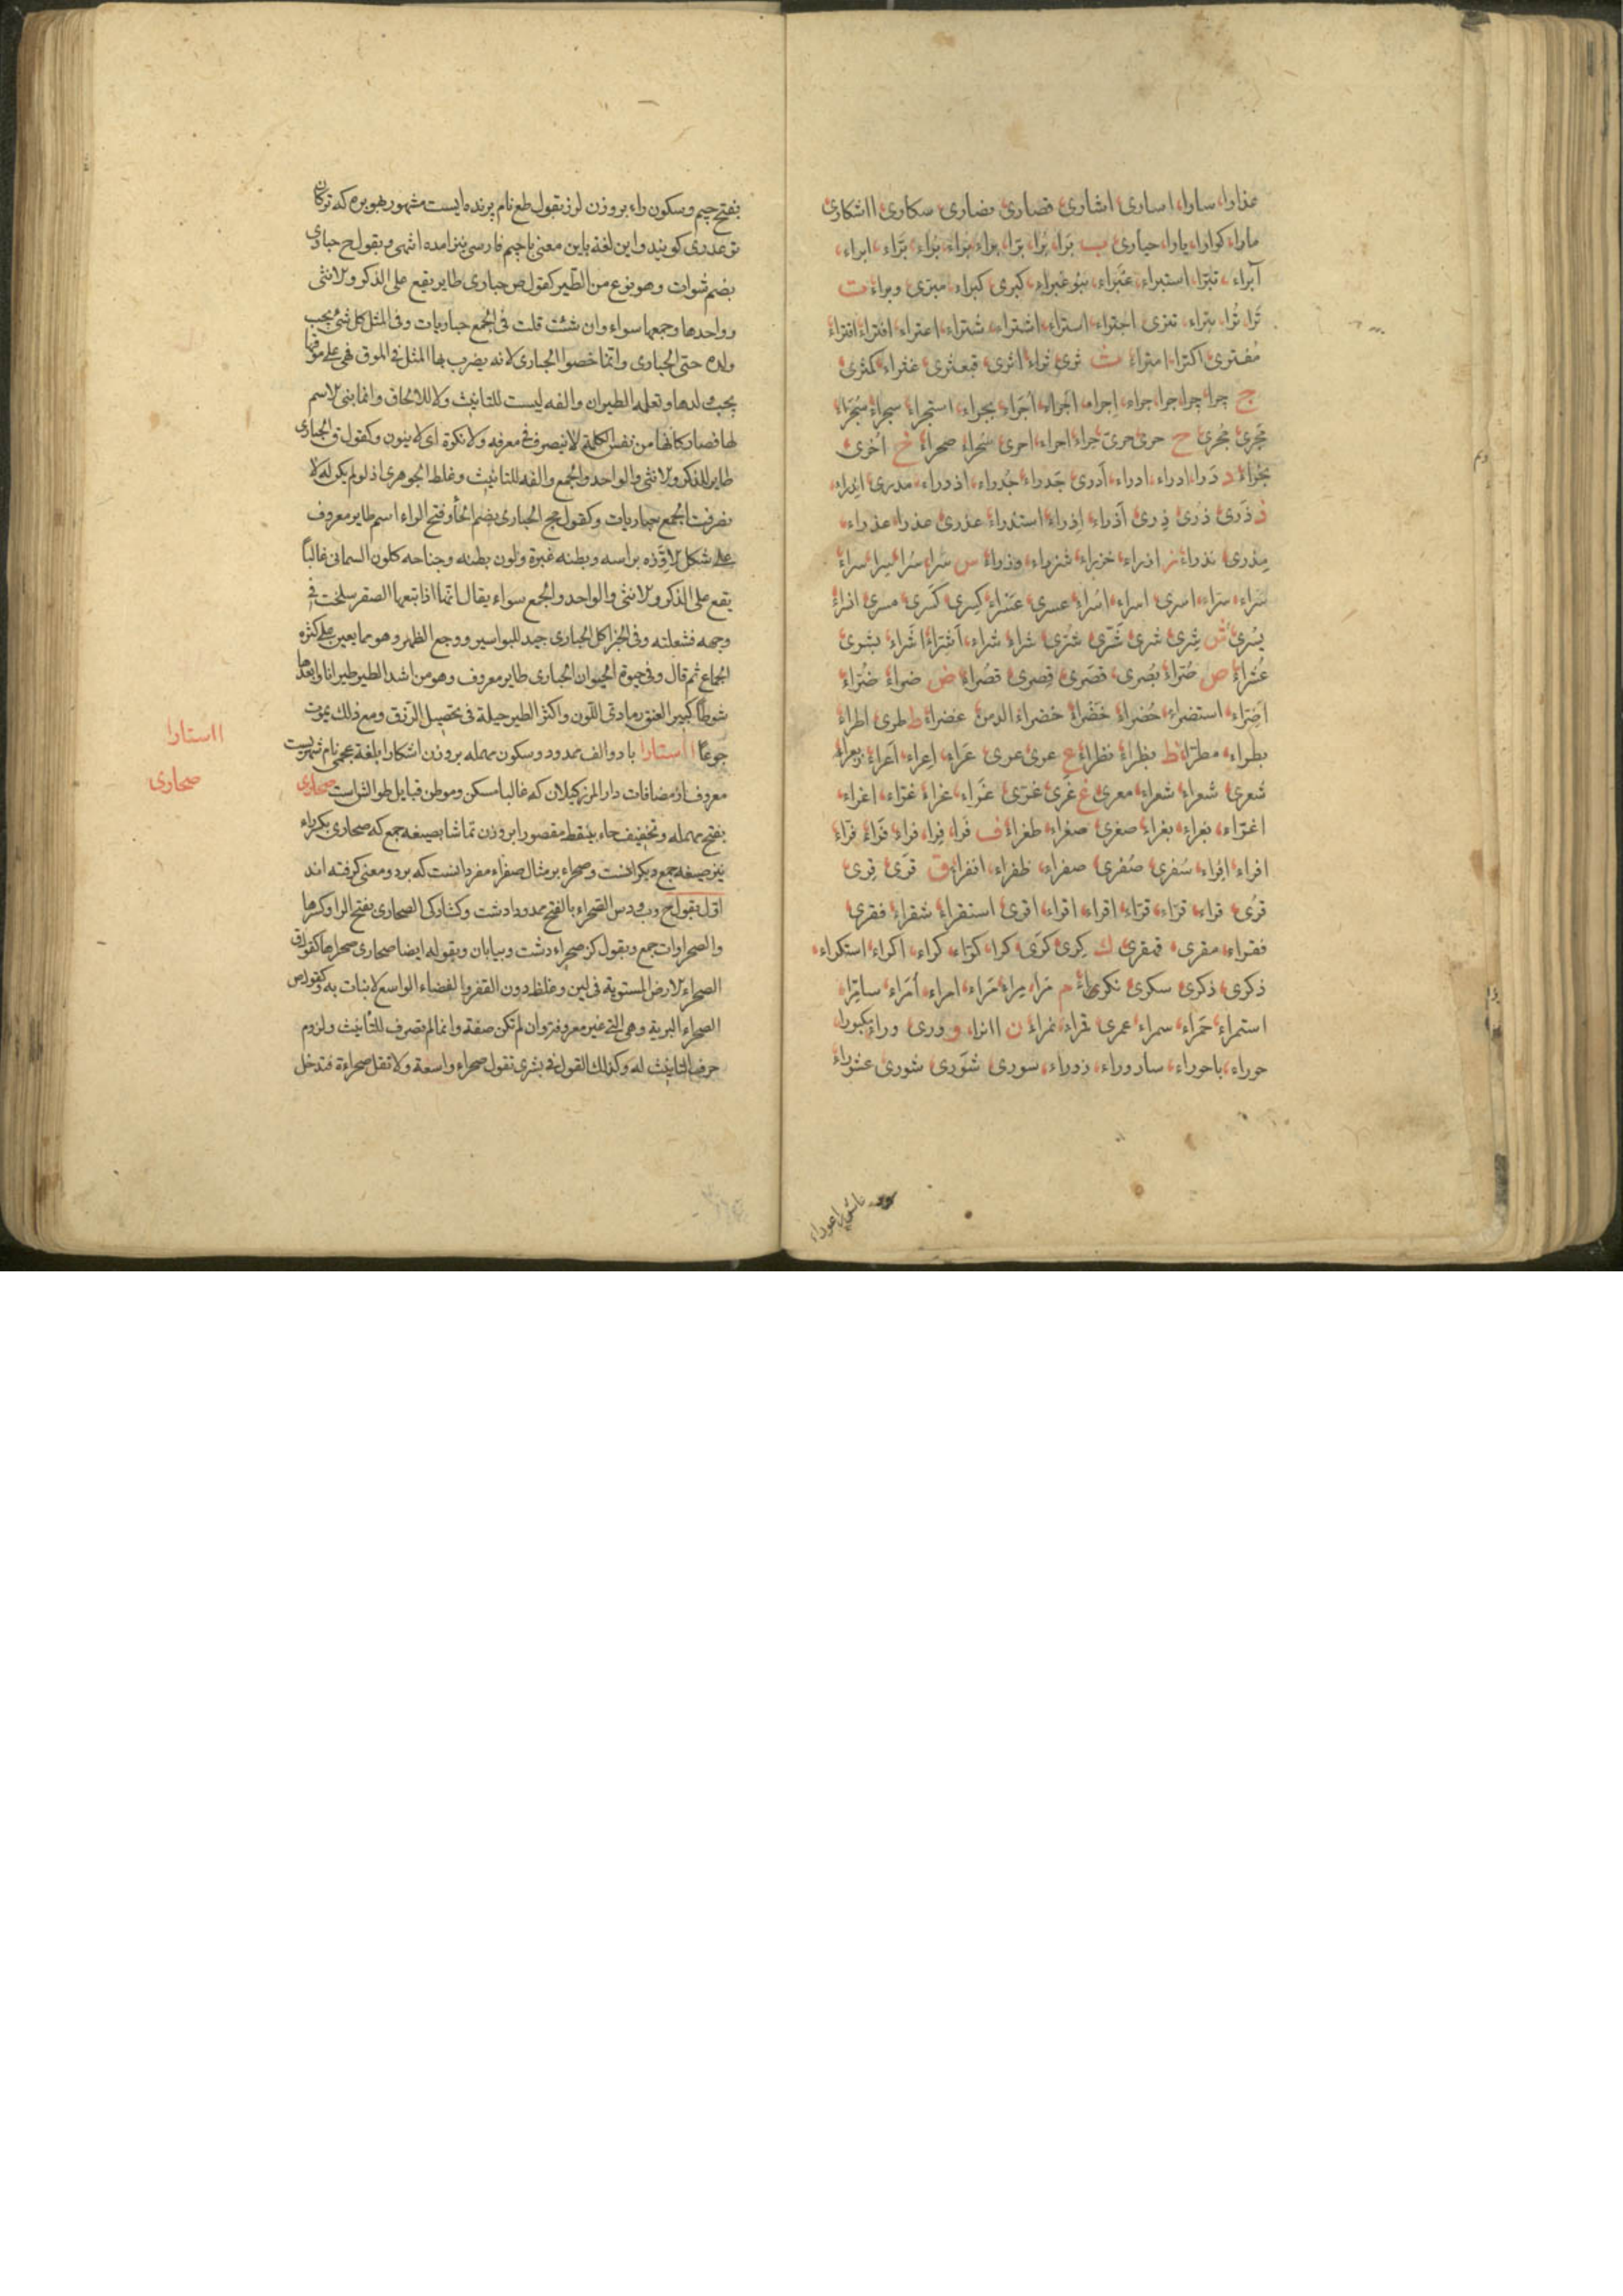 عذاوا، ساوا، اساری، اشاری، قصاری، نصاری، سکاری، ااشکاری
ماراء کوارا، یاوا، حیاری ب بَرا، بُرا، برّا، براء، بَراء، بُراء، بَرّاء، ابراء،
آبراء، تبرّا، استبراء، عَبَراء، غبراء، کبری، کبراء، مبری، وبراء ت
تَرا، تُرا، بتراء، تتری، اجتراء، استراء، اشتراء، شتراء، اعتراء، افتراء، اقتراء
مُفتری، اکترا، امتراء ث ثری، ثراء، اثری، قبعثری، غثراء، کمثری
ج چرا، چرا، جرا، جراء، اِجراء، اجراء، اَجراء، بجراء، استجراء، سجراء، شجراء
مَجری، مُجری ح حری، حریّ، حراء، احراء، احری، سُحراء، صحراء خ اُخری
بخراء د دَرا، ادراء، ادراء، اَدری، جَدراء، جُدراء، اذدراء، مدری
ذ ذَری، ذُری، ذِری، اَذراء، اِذراء، استذراء، عذری، عذرا، عذراء،
مِذری، نذراء ز ازراء، خزراء، شزراء، وزراء س سَرا، سُرا، سراء
سَراء، سرّاء، اسری، اسراء، اُسراء، عسری، عَسراء، کِسری، کَسری، مسری
یُسری ش شِری، شری، شَرّی، شُرّی، شراء، شراء، اَشراء، بشری
عُشراء ص صُرّاء، بُصری، قصَری، قِصری، قصُراء ض ضراء، ضُرّاء
اَضِرّاء، استضراء، حُضراء، خَضراء، خضراء الدمن، غضراء ط طری، اطراء
بطراء، مطرا ظ بظراء، نظراء ع عری، عری، عَراء، اِعراء، اَعراء، زعراء
شعری، شعراء، شعراء، معری غ غَری، غرّی، غَراء، غراء، غرّاء، اغراء،
اغرّاء، بغراء، بغراء، صغری، صغراء، طغراء ف فَرا، فِرا، فراء، فَراء، فرّاء
افراء، اِفراء، سُفری، صُفری، صفراء، ظفراء، انفرا ق قَری، قِری
قُری، قراء، قرّاء، قرّاء، اقراء، اقراء، اقری، استقراء، شقراء، فقری
فقراء، مقری، قهقری ک کِری، کَری، کرا، کرّاء، کراء، اکراء، استکراء،
ذکری، ذکری، سکری، نکری م مَرا، مِراء، مَرّاء، امراء، اَمراء، سامرّا،
استمراء، حمراء، سمراء، عمری، قمراء، نمراء ن اانرا، و وری، وراء، کبورا،
حوراء، باحوراء، ساروراء، زوراء، سوری، شَوری، شوری، عشوراء
بفتح جیم و سکون راء بر وزن لرز بقول طع نام پرنده ایست مشهور بهوبره که ترکان
توغدری کویند و این لغة باین معنی با جیم فارسی نیز امده انتهی و بقول ح حباری
بضم شوات و هو نوع من الطّیر کقول ص حباری طایر یقع علی الذکر و الانثی
و واحدها و جمعها سواء و ان شئت قلت فی الجمع حباریات و فی المثل کل شئ یحب
ولده حتی الحباری و انّما خصوا الحباری لانه یضرب بها المثل فی الموق فهی علی موقها
یحب ولدها و تعلمه الطیران و الفه لیست للتانیث و لا للالحاق و انما بنی الاسم
لها فصار کانها من نفس الکلمة لا ینصرف فی معرفه و لا نکرة ای لا ینون و کقول ق الحباری
طایر للذکر و الانثی و الواحد و الجمع و الفه للتانیث و غلط الجوهری اذ لو لم یکن له لا
نصرفت الجمع حباریات و کقول مج الحباری بضم الحا و فتح الراء اسم طایر معروف
علی شکل الاوزّه براسه و بطنه غبرة و لون بطنه و جناحه کلون السمانی غالباً
یقع علی الذکر و الانثی و الواحد و الجمع سواء یقال انّما اذا تبعها الصقر سلخت فی
وجهه فشغلته و فی الخبر اکل الحباری جید للبواسیر و وجع الظهر و هو مما یعین علی کثرة
الجماع ثم قال و فی حیوة الحیوان الحباری طایر معروف و هو من اشد الطیر طیرانا و ابعدها
شوطاً کبیر العنق رمادی اللّون و اکثر الطیر حیلة فی تحصیل الرّزق و مع ذلک یموت
جوعاً ااستارا با دو الف ممدود و سکون مهمله بر وزن اشکارا بلغة عجمی نام شهریست
معروف از مضافات دار المرز کیلان که غالبا مسکن و موطن قبایل طوالش است صحاری
بفتح مهمله و تخفیف حاء بینقط مقصورا بر وزن تماشا بصیغه جمع که صحاری بکسر راء
نیز صیغه جمع دیکر انست و صحراء بر مثال صفراء مفرد انست که بر دو معنی کرفته اند
اوّل بقول ح الصّحراء بالفتح ممدودا دشت و کشادکی الصحاری بفتح الرا و کسرها
و الصحراوات جمع و بقول کز صحراء دشت و بیابان و بقوله ایضا صحاری صحراها کقول ق
الصحراء الارض المستویة فی لین و غلظ دون القفر و الفضاء الواسع لا نبات به و کقول ص
الصحراء البریة و هی التی غیر مصروفة و ان لم تکن صفة و انما لم تصرف للتّانیث و لزوم
حرف التّانیث له و کذلک القول فی بشری تقول صحراء واسعة و لا تقل صحراءة فتدخل
ااستارا
صحاری